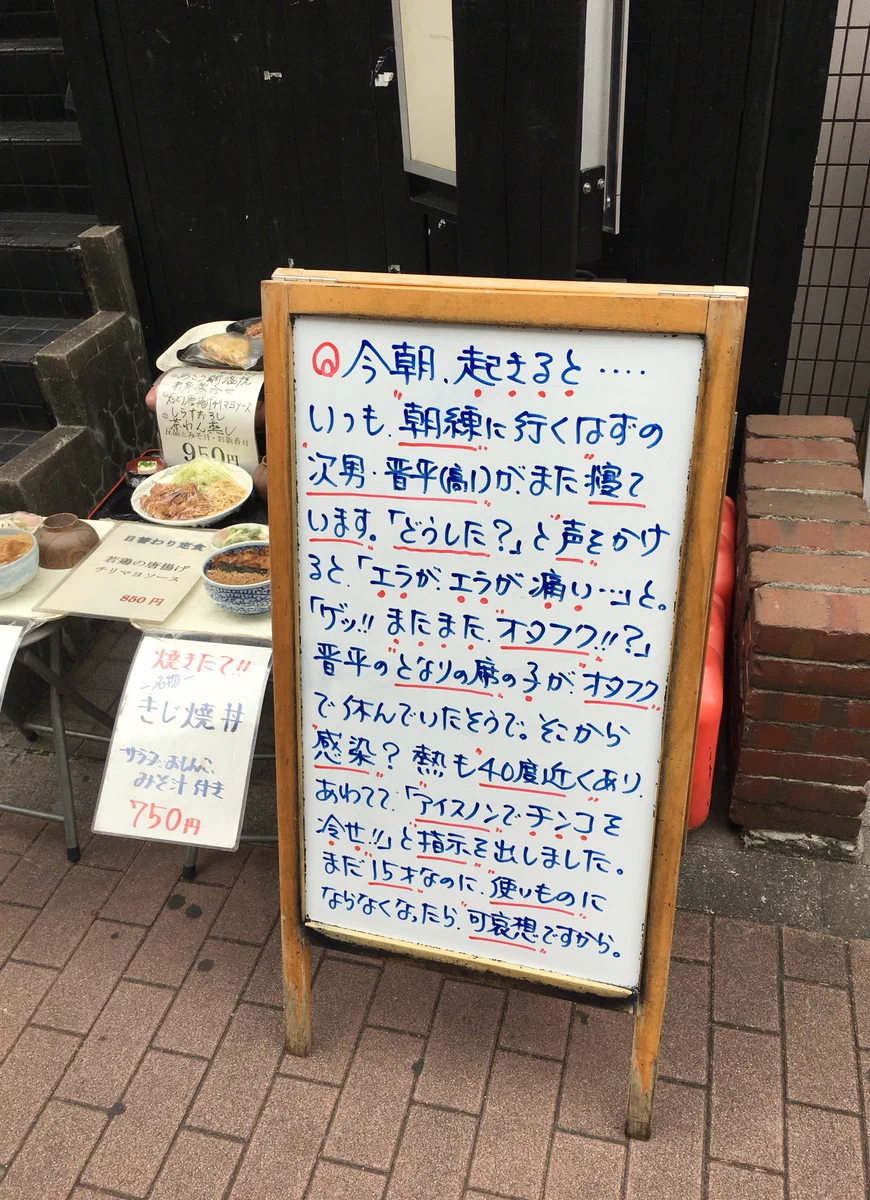 今朝、起きると‥‥
いつも、朝練に行くはずの
次男・晋平(高1)が、まだ寝て
います。「どうした?」と声をかけ
ると、「エラが、エラが、痛い…」と。
「ゲッ!! またまた、オタフク!!?」
晋平のとなりの席の子が、オタフク
で休んでいたそうで。そこから
感染? 熱も40度近くあり、
あわてて、「アイスノンでチンコを
冷せ!!」と指示を出しました。
まだ15才なのに、使いものに
ならなくなったら、可哀想ですから。
茶わん蒸し
950円
日替わり定食
若鶏の唐揚げ
チリマヨソース
850円
焼きたて!!
きじ焼丼
サラダ、おしんこ、
みそ汁付き
750円